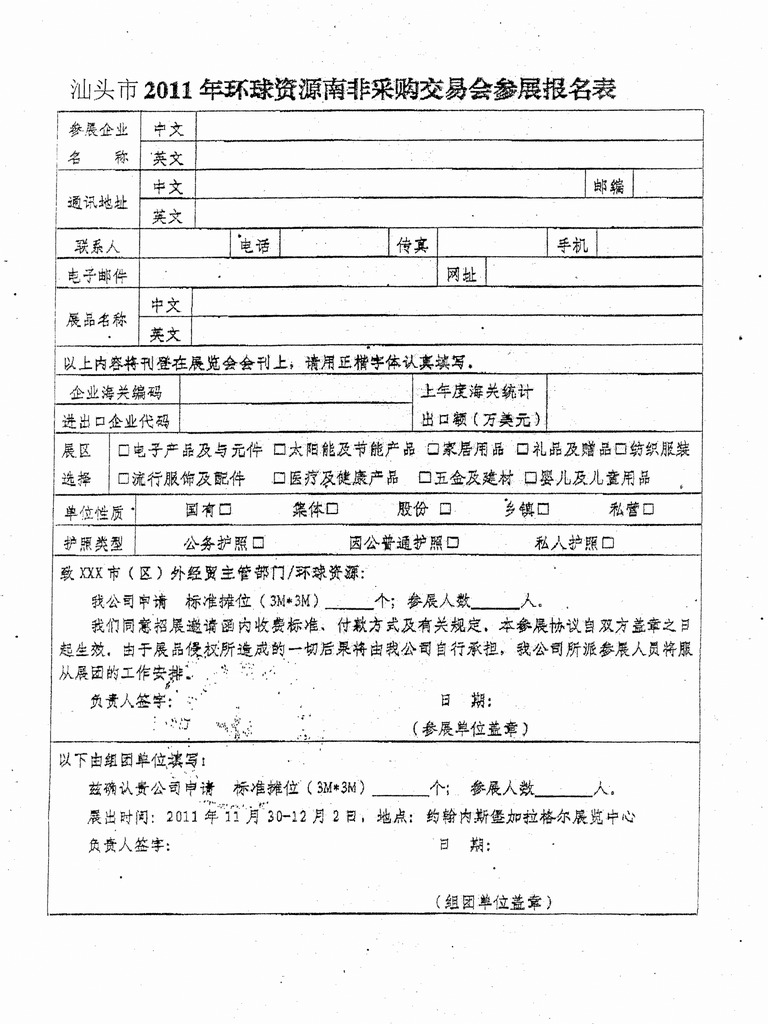 汕头市2011年环球资源南非采购交易会参展报名表
参展企业 中文
名 称 英文
通讯地址 中文 邮编
英文
联系人 电话 传真 手机
电子邮件 网址
展品名称 中文
英文
以上内容将刊登在展览会会刊上，请用正楷字体认真填写。
企业海关编码 上年度海关统计
进出口企业代码 出口额（万美元）
展区 □电子产品及与元件 □太阳能及节能产品 □家居用品 □礼品及赠品□纺织服装
选择 □流行服饰及配件 □医疗及健康产品 □五金及建材 □婴儿及儿童用品
单位性质 国有□ 集体□ 股份 □ 乡镇□ 私营□
护照类型 公务护照□ 因公普通护照□ 私人护照□
致XXX市（区）外经贸主管部门/环球资源：
我公司申请 标准摊位（3M*3M）______个；参展人数______人。
我们同意招展邀请函内收费标准、付款方式及有关规定，本参展协议自双方盖章之日
起生效。由于展品侵权所造成的一切后果将由我公司自行承担，我公司所派参展人员将服
从展团的工作安排。
负责人签字： 日 期：
（参展单位盖章）
以下由组团单位填写：
兹确认贵公司申请 标准摊位（3M*3M）_______个； 参展人数_______人。
展出时间：2011年11月30-12月2日，地点：约翰内斯堡加拉格尔展览中心
负责人签字： 日 期：
（组团单位盖章）